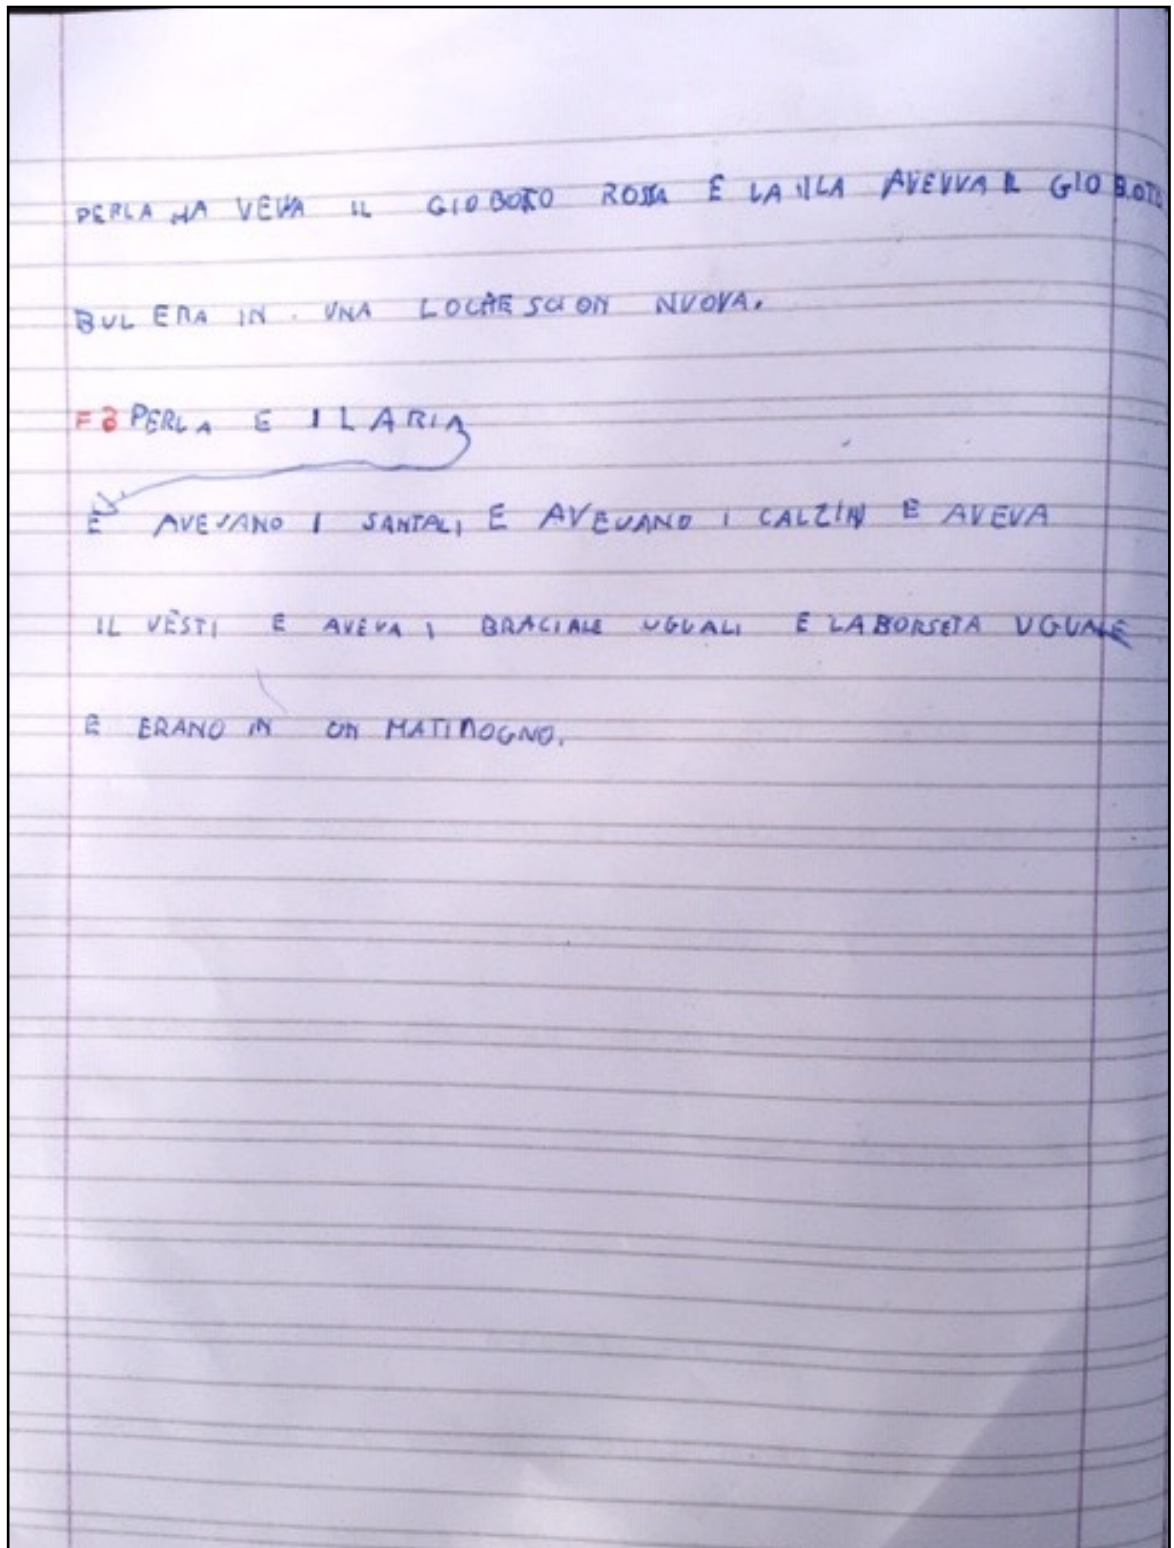 PERLA HA VEVA IL GIOBOTO ROSSA E LA ILA AVEVVA IL GIOBOTO
BUL ERA IN UNA LOCHESCION NUOVA.
F3 PERLA E ILARIA
E AVEVANO I SANTALI E AVEVANO I CALZIN E AVEVA
IL VESTI E AVEVA I BRACIALE UGUALI E LA BORSETA UGUALE
E ERANO IN UN MATIMOGNO.